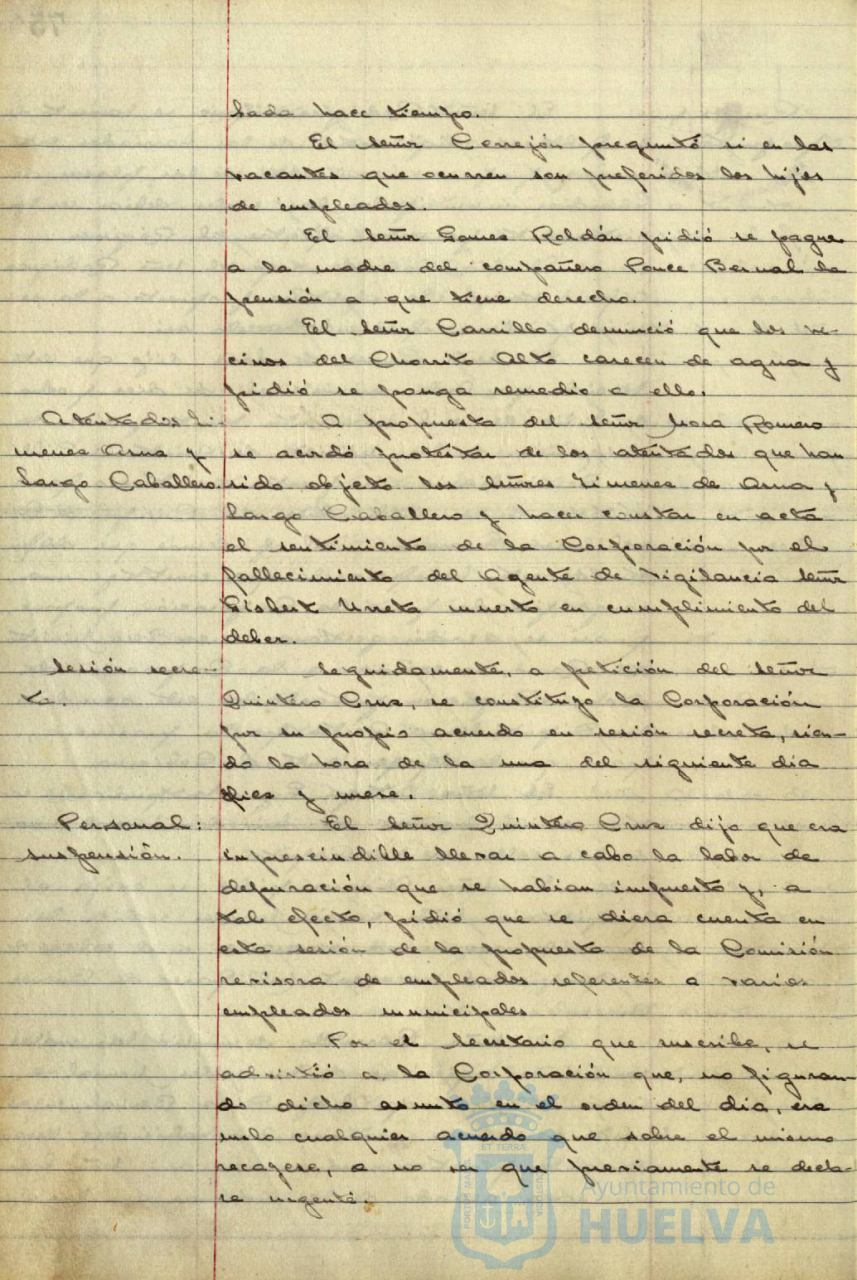 lada hace tiempo.
El señor Cerrejón preguntó si en las
vacantes que ocurren son preferidos los hijos
de empleados.
El señor Gomez Roldán pidió se pague
a la madre del compañero Ponce Bernal la
pensión a que tiene derecho.
El señor Carrillo denunció que los ve-
cinos del Chorrito Alto carecen de agua y
pidió se ponga remedio a ello.
Atentados Ji-
menez Asua y
Largo Caballero.
A propuesta del señor Mora Romero
se acordó protestar de los atentados que han
sido objeto los señores Jimenez de Asua y
Largo Caballero y hacer constar en acta
el sentimiento de la Corporación por el
fallecimiento del Agente de Vigilancia señor
Gisbert Urreta muerto en cumplimiento del
deber.
Sesión secre-
ta.
Seguidamente, a petición del señor
Quintero Cruz, se constituyó la Corporación
por su propio acuerdo en sesión secreta, sien-
do la hora de la una del siguiente día
diez y nueve.
Personal:
suspensión.
El señor Quintero Cruz dijo que era
imprescindible llevar a cabo la labor de
depuración que se habían impuesto y, a
tal efecto, pidió que se diera cuenta en
esta sesión de la propuesta de la Comisión
revisora de empleados referentes a varios
empleados municipales
Por el Secretario que suscribe, se
advirtió a la Corporación que, no figuran-
do dicho asunto en el orden del día, era
nulo cualquier acuerdo que sobre el mismo
recayese, a no ser que previamente se decla-
re urgente.
Ayuntamiento de
HUELVA